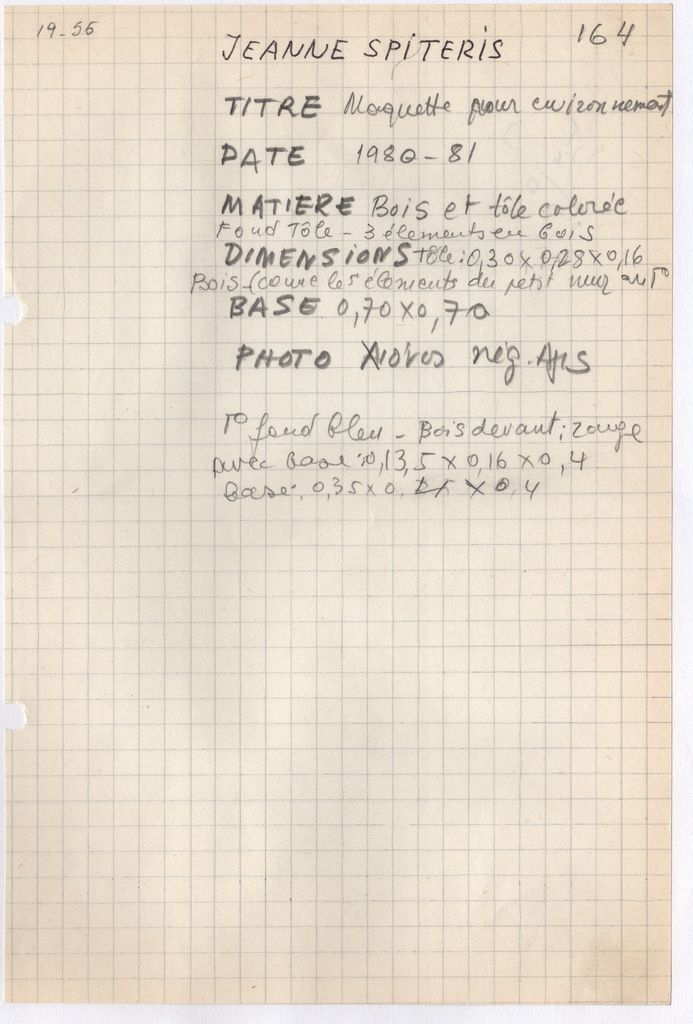 19-56
164
JEANNE SPITERIS
TITRE Maquette pour environnement
DATE 1980-81
MATIERE Bois et tôle colorée
Fond Tôle - 3 élements en bois
DIMENSIONS Tôle: 0,30 x 0,28 x 0,16
Bois (comme les éléments du petit mur
BASE 0,70 x 0,70
PHOTO neg.
fond bleu - Bois devant: rouge
avec base: 0,13,5 x 0,16 x 0,4
base: 0,35 x 0, x 0,4